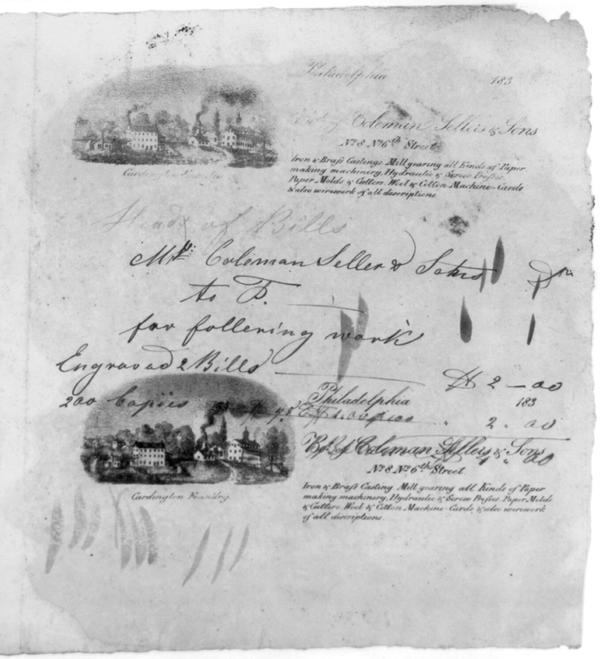 Philadelphia 183
Bot of Coleman Sellers & Sons
No 8 No 6th Street
Iron & Braſs Castings Mill gearing all Kinds of Paper
making machinery, Hydraulic & Screw Preſses
Paper Molds & Cutters, Wool & Cotton Machine-Cards
& also wirework of all descriptions
Cardington Foundry
Heads of Bills
Mrs. Coleman Seller & Sons Dr
to P.
for follering work
Engraved 2 Bills $ 2-00
200 Copies 2.00
Philadelphia 183
Bot of Coleman Sellers & Sons
No 8 No 6th Street
Cardington Foundry
Iron & Braſs Casting Mill gearing all Kinds of Paper
making machinery, Hydraulic & Screw Preſses Paper Molds
& Cutters, Wool & Cotton Machine-Cards & also wirework
of all discriptions.